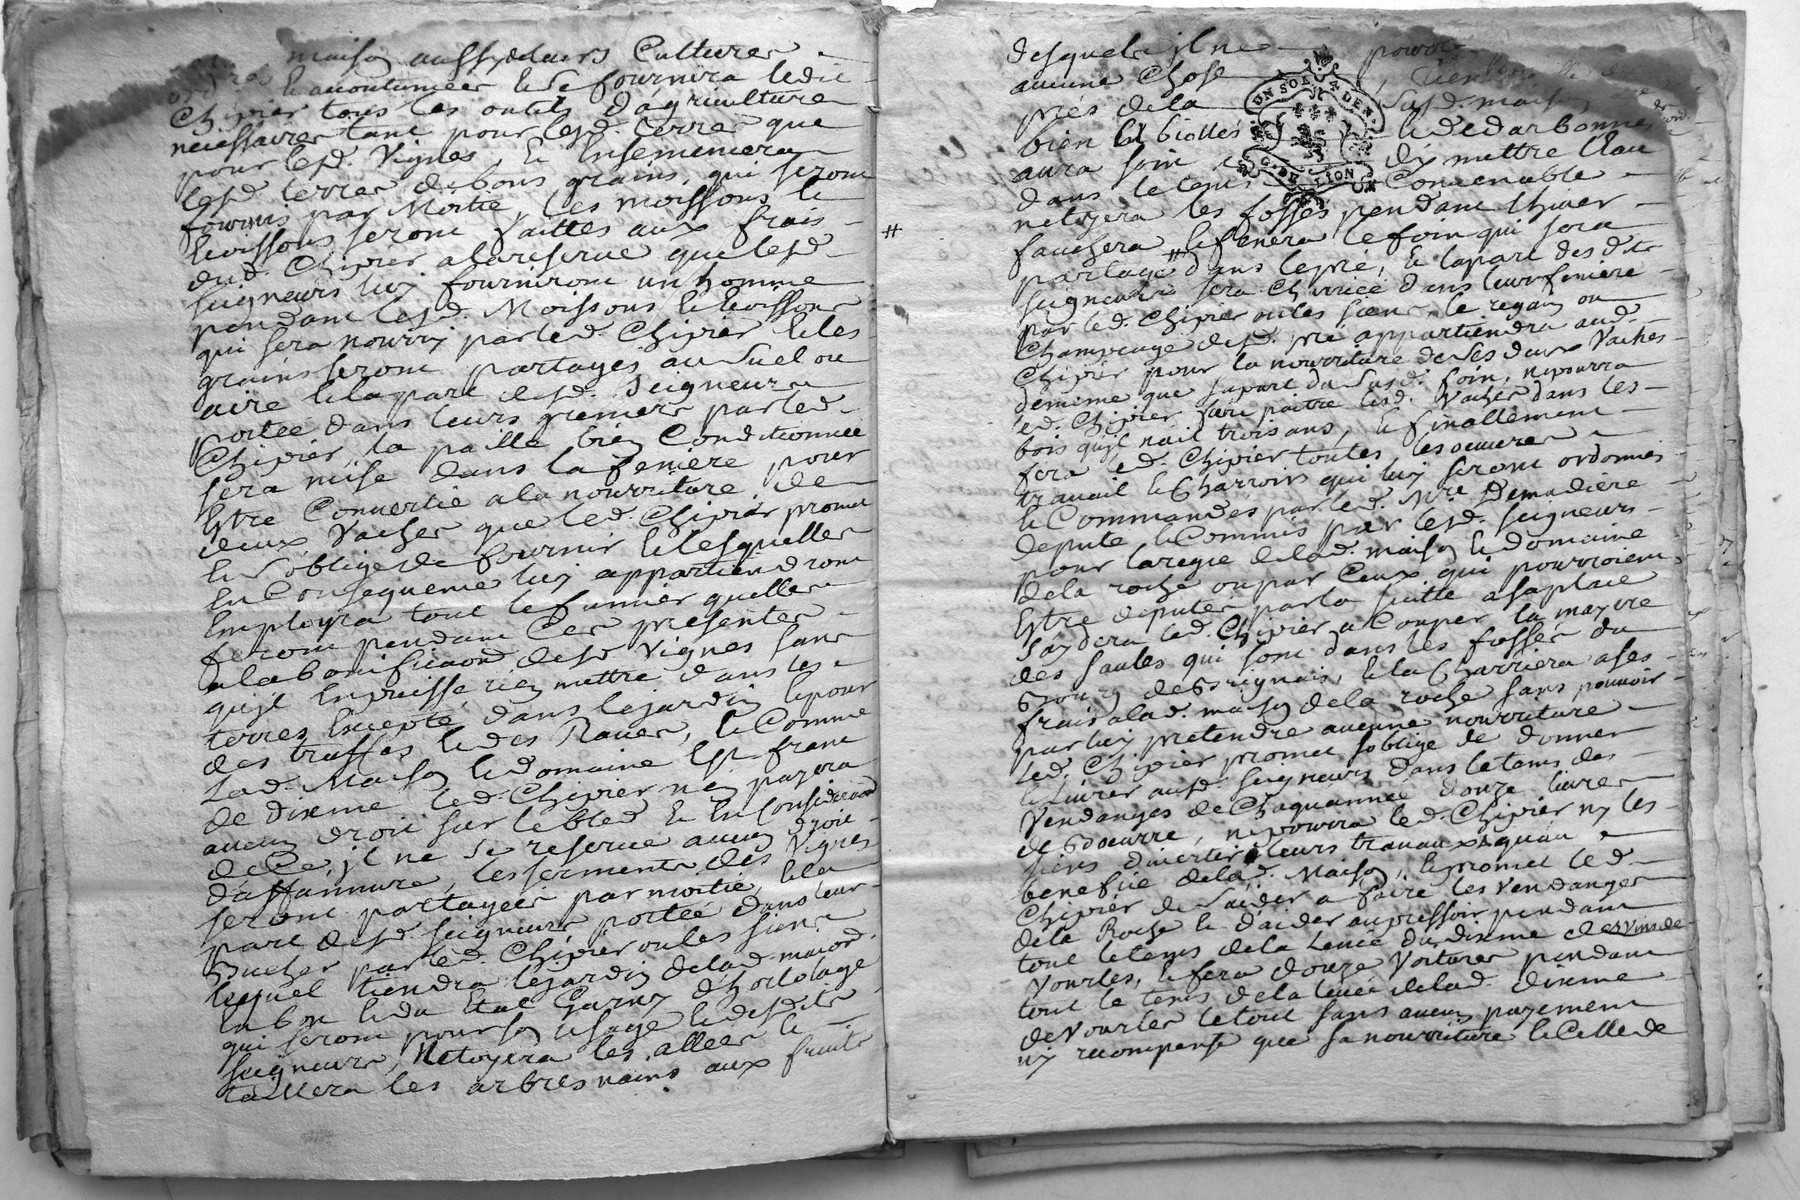 maison aussy dans Cultures
accoutumées et se fournira ledit
Chipier tous les outils d'agriculture
necessaires tant pour lesd. terres que
pour lesd. Vignes, Et Ensemencera
lesd terres de bons grains, qui seront
fournis par Moitié, les moissons et
Ecossons seront faittes aux frais
dud. Chipier alareserve que lesd
seigneurs luy fourniront un homme
pendant lesd. Moissons et Ecossons
qui sera nourry par led. Chipier et les
grains seront partagés au Suel ou
aire et la part desd. Seigneurs
portée dans leurs greniers par led
Chipier, la paille bien Conditionnée
sera mise dans la feniere pour
Estre Convertie ala nourriture de
deux Vaches que led. Chipier promet
et s'oblige de fournir et lesquelles
En Consequence luy appartiendront
Employra tout le fumier quelles
feront pendant Ces presentes
ala bonificaon desd Vignes sans
qu'jl En puisse rien mettre dans les
terres Excepté dans le jardin et pour
des truffes et des Raves, et Comme
Lad. Maison et domaine Est franc
de dixme led. Chipier n'en payera
aucun droit sur le bled Et En Consideraon
de Ce, jl ne se reserve aucun droit
d'affannure, les serments des Vignes
seront partagées par moitié, et la
part desd. seigneurs portée dans leur
Bucher par led. Chipier ou les siens
lequel tiendra le jardin de lad. maison
En bon et du Etat Garny d'hortolage
qui seront pour son usage et desdits
seigneurs, Netoyera les allées et
taillera les arbres nains aux fruits
desquels jl ne pourra
aucune Chose
prés de la susd. maison
bien et biallés et de darbonnes
aura soin d'y mettre l'Eau
dans le tems Convenable
netoyera les fossés pendant l'hiver
fauchera et fenera le foin qui sera
#
partagé # dans le pré, et la part des dits
seigneurs sera Charriée dans leur feniere
par led. Chipier ou les siens, le regain ou
Champeage dud. pré appartiendra aud.
Chipier pour la nourriture de ses deux Vaches
de même que sa part du susd. foin, ne pourra
led. Chipier faire paitre lesd. Vaches dans les
bois qu'jl n'ait trois ans, et finallement
fera led. Chipier toutes les oeuvres
travail et Charrois qui luy seront ordonnés
et Commandés par led. Mre Demadiere
deputé et Commis par lesd. seigneurs
pour la regie de lad. maison et domaine
de la roche ou par Ceux qui pourroient
Estre deputés par la suitte a sa place
s'aydera led. Chipier a Couper la mayere
des saules qui sont dans les fossés du
Bourg de Brignais, et la Charriera a ses
frais a lad. maison de la roche sans pouvoir
par luy pretendre aucune nourriture
Led. Chipier promet s'oblige de donner
et Livrer ausd. seigneurs dans le tems des
Vendanges de Chaque année douze livres
de Beurre, ne pourra led. Chipier ny les
siens divertir leurs travaux qu'au
benefice de lad. Maison, et promet led.
Chipier de s'aider a faire les Vendanges
de la Roche et d'aider au pressoir pendant
tout le tems de la Levée du dixme des Vins de
Vourles, et fera douze Voitures pendant
tout le tems de la levée de lad. dixme
de Vourles le tout sans aucun payement
ny recompense que sa nourriture et Celle de
UN SOL 4 DEN.
G. DE LION